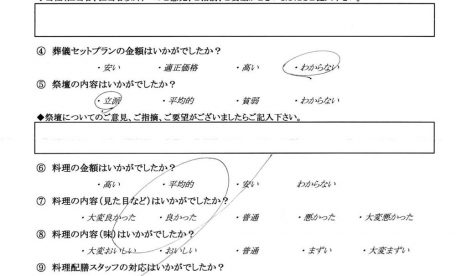 ④ 葬儀セットプランの金額はいかがでしたか？
・安い ・適正価格 ・高い ・わからない
⑤ 祭壇の内容はいかがでしたか？
・立派 ・平均的 ・貧弱 ・わからない
◆祭壇についてのご意見、ご指摘、ご要望がございましたらご記入下さい。
⑥ 料理の金額はいかがでしたか？
・高い ・平均的 ・安い わからない
⑦ 料理の内容(見た目など)はいかがでしたか？
・大変良かった ・良かった ・普通 ・悪かった ・大変悪かった
⑧ 料理の内容(味)はいかがでしたか？
・大変おいしい ・おいしい ・普通 ・まずい ・大変まずい
⑨ 料理配膳スタッフの対応はいかがでしたか？